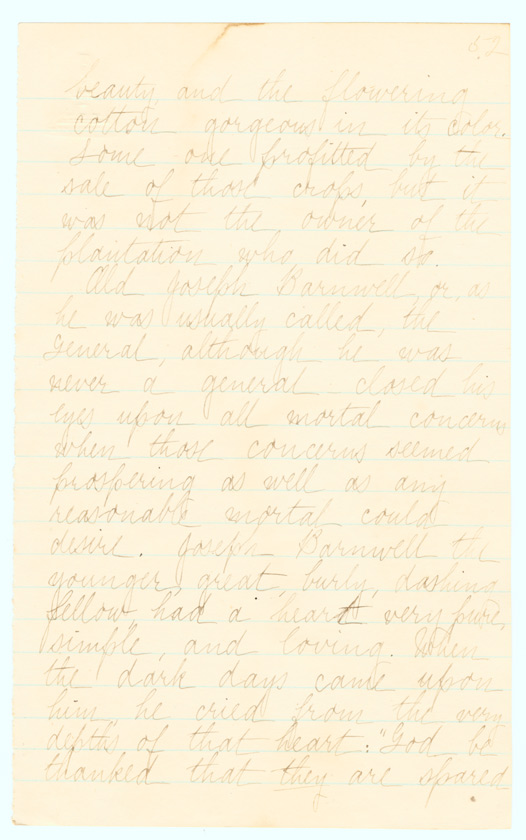 52
beauty, and the flowering
cotton gorgeous in its color.
Some one profitted by the
sale of those crops, but it
was not the owner of the
plantation who did so.
Old Joseph Barnwell, or, as
he was usually called, the
General, although he was
never a general closed his
eyes upon all mortal concerns
when those concerns seemed
prospering as well as any
reasonable mortal could
desire. Joseph Barnwell the
younger, great, burly, dashing
fellow had a heart very pure,
simple, and loving. When
the dark days came upon
him he cried from the very
depths of that heart: "God be
thanked that they are spared